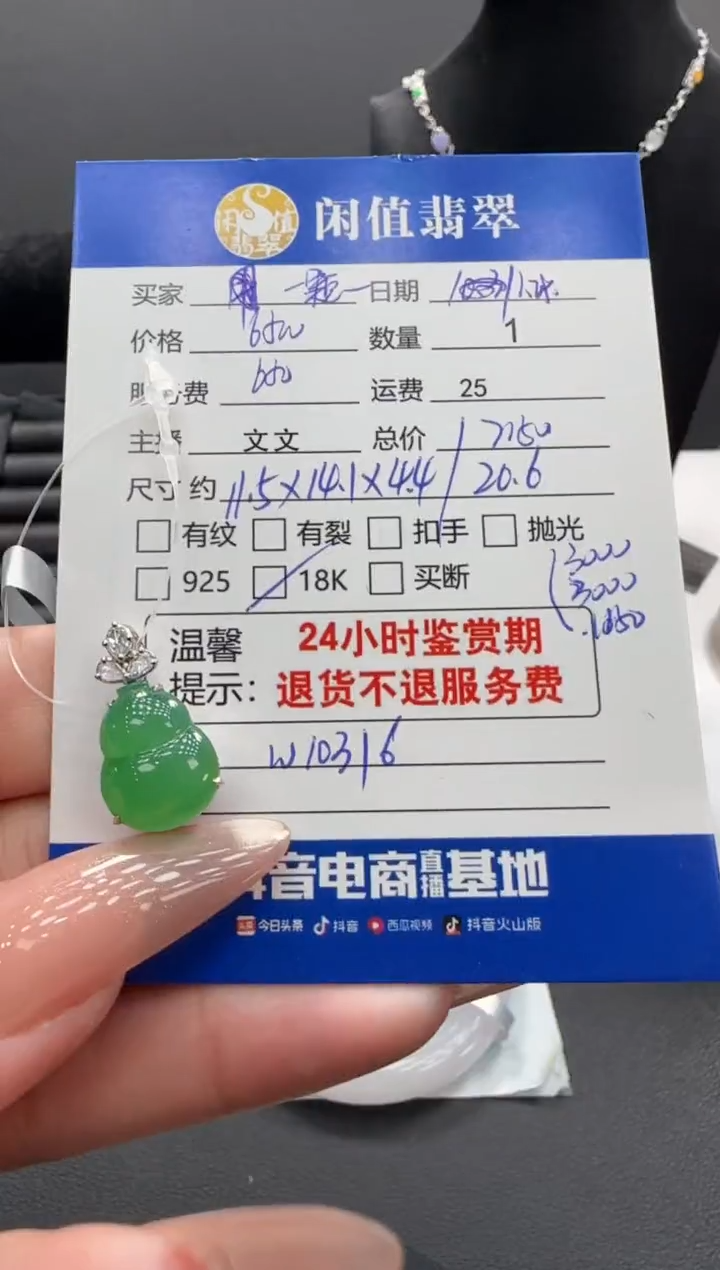 闲值翡翠
闲值翡翠
买家 一颗 日期
价格 6500 数量 1
服务费 650 运费 25
主播 文文 总价 7150
尺寸 约 11.5×14.1×4.4/20.6
有纹 有裂 扣手 抛光
925 18K 买断
3000
3000
1150
温馨 24小时鉴赏期
提示: 退货不退服务费
W10316
抖音电商直播基地
头条 今日头条 抖音 西瓜视频 抖音火山版